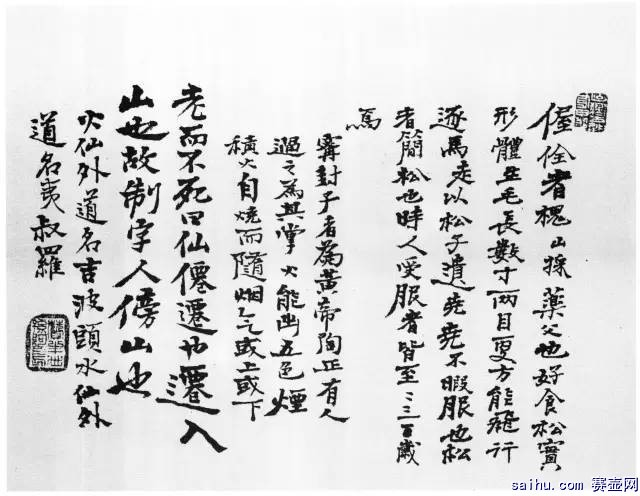 偓佺者槐山採藥父也好食松實
形體生毛長數寸兩目更方能飛行
逐馬走以松子遺堯堯不暇服也松
者簡松也時人受服者皆至二三百歲
焉
甯封子者為黃帝陶正有人
過之為其掌火能出五色煙
積火自燒而隨烟气或上或下
老而不死曰仙僊遷也遷入
山也故制字人傍山也
火仙外道名吉波頭水仙外
道名夷叔羅
saihu.com 赛壶网